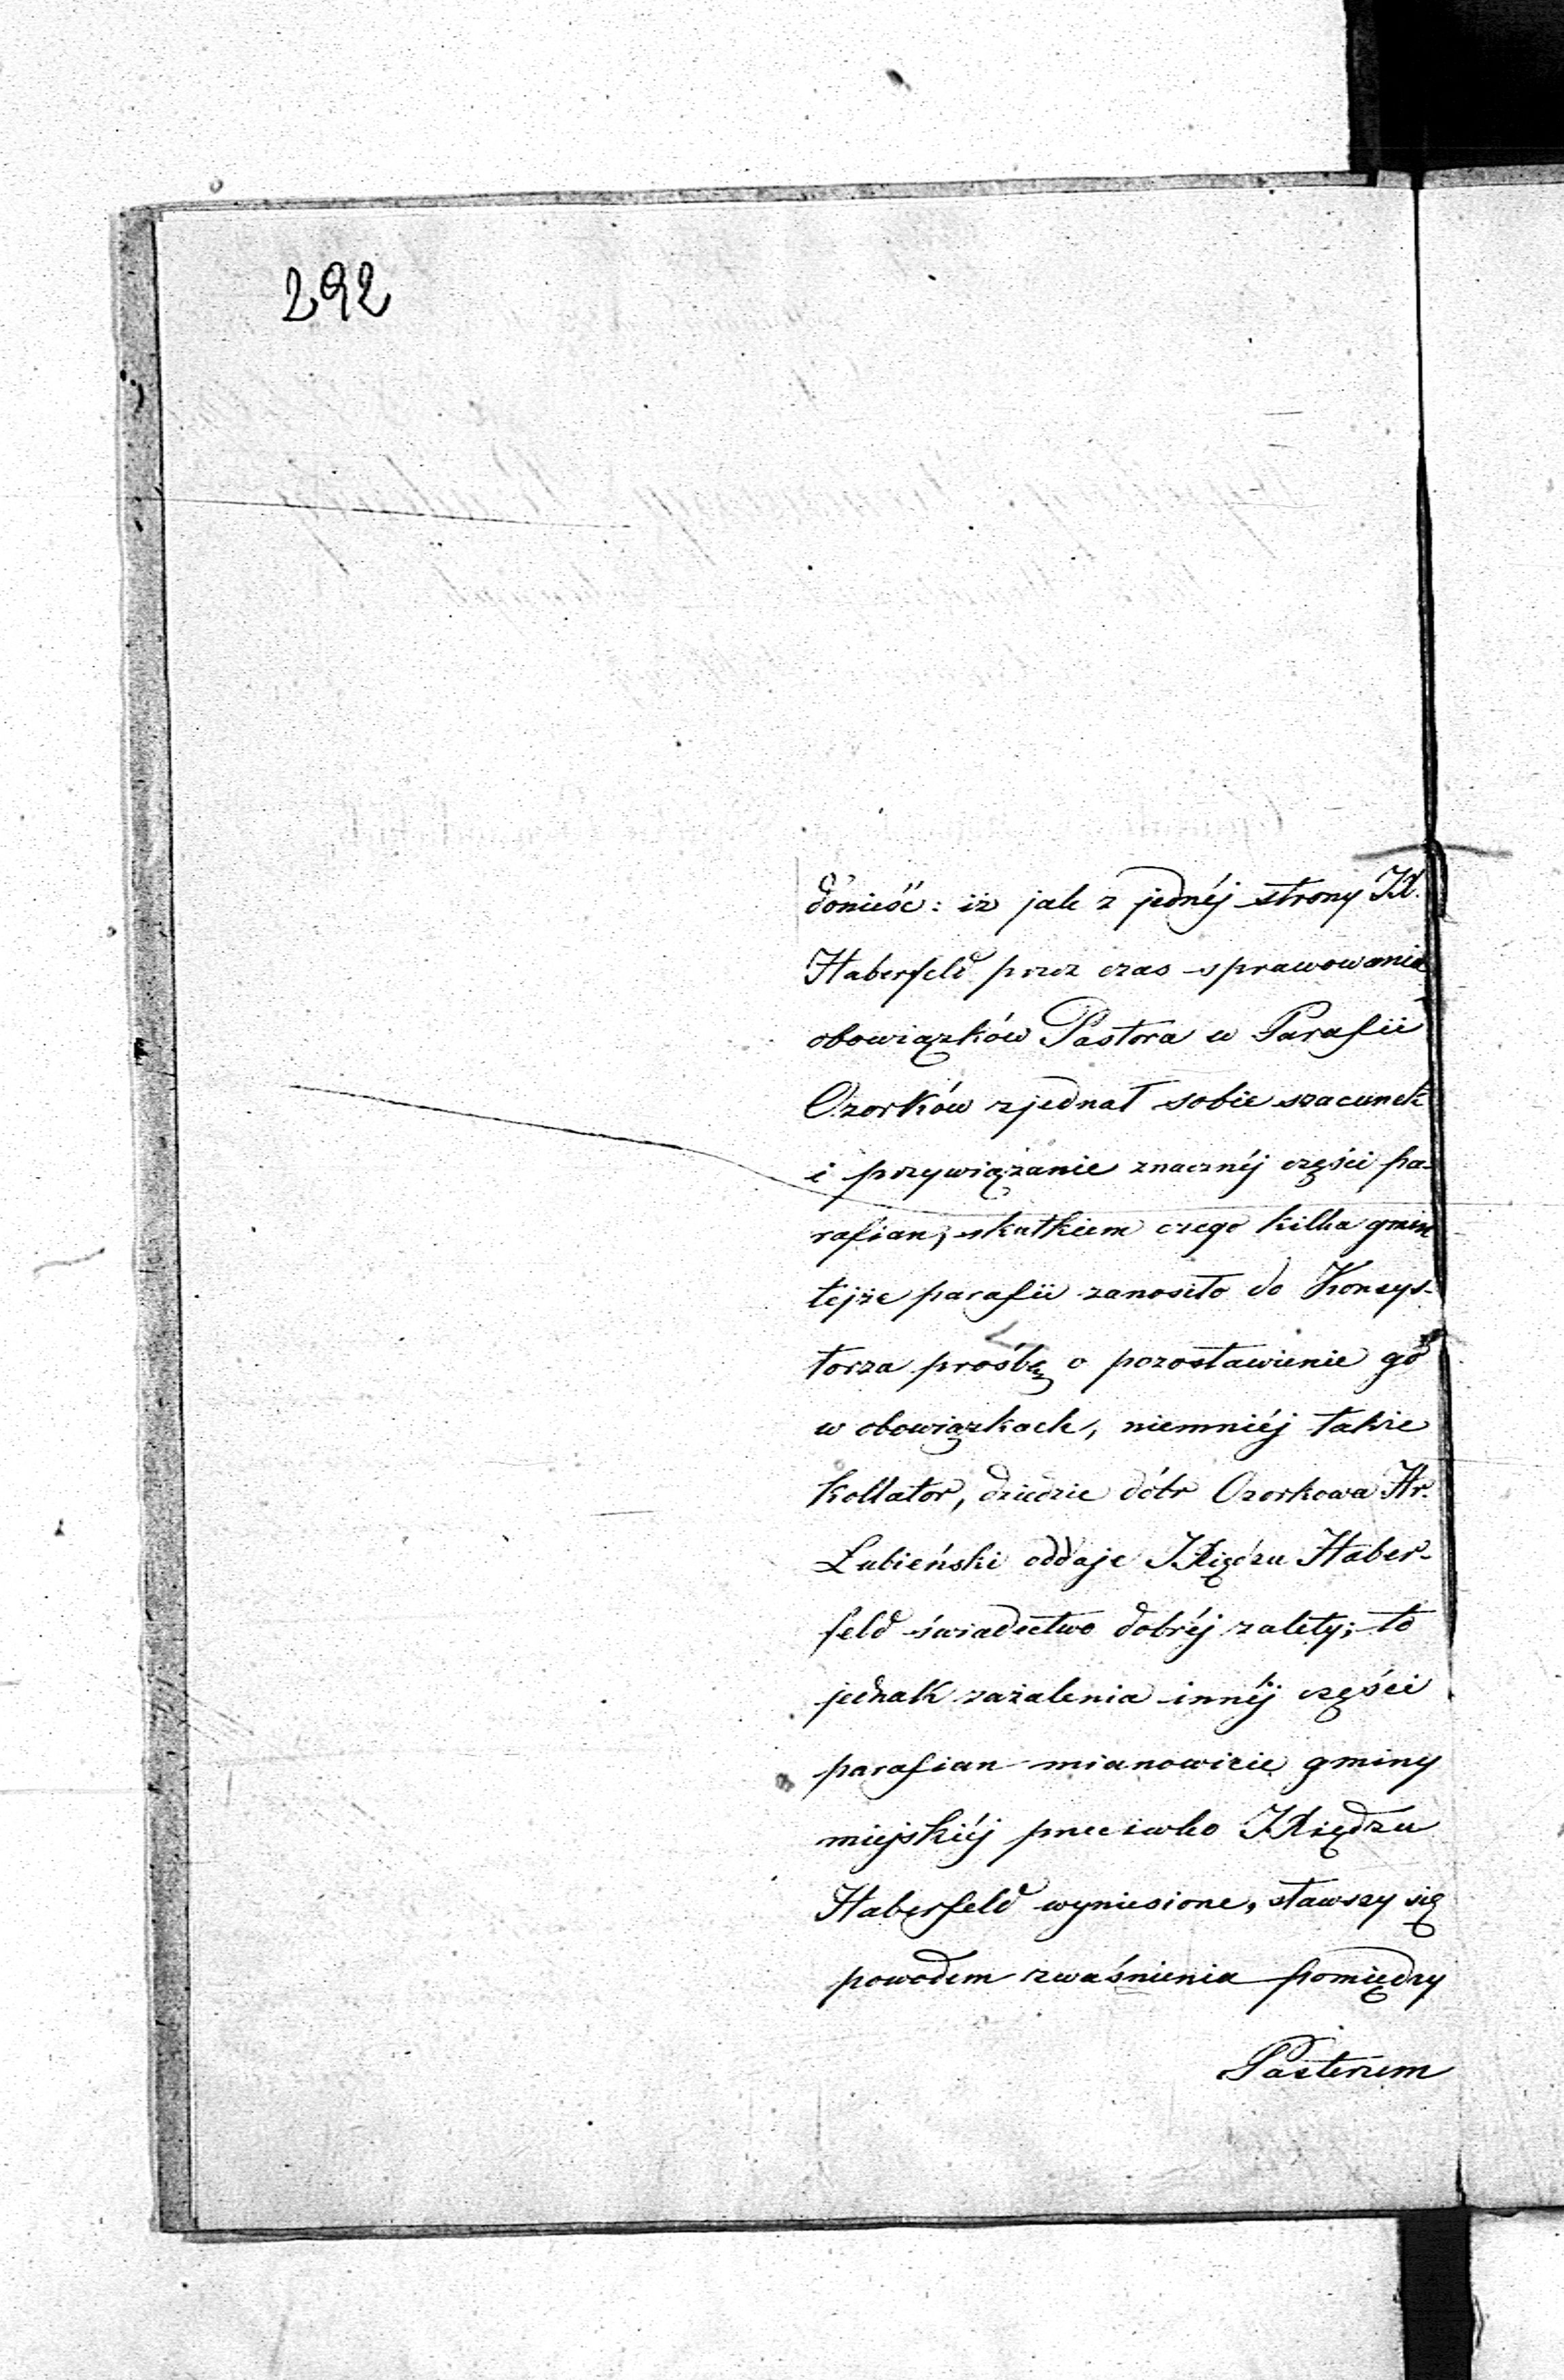 292
donieść: iż jak z jednéj strony Xd.
Haberfeld przez czas sprawowania
obowiązków Pastora w Parafii
Ozorków zjednał sobie szacunek
i przywiązanie znacznéj części pa-
rafian, skutkiem czego kilka gmin
tejże parafii zanosiło do Konsys-
torza prośbę o pozostawienie go
w obowiązkach, niemniéj także
Kollator, dziedzic dóbr Ozorkowa Hr.
Łubieński oddaje Xiędzu Haber-
feld świadectwo dobréj zalety; to
jednak zażalenia innéj części
parafian mianowicie gminy
miejskiéj przeciwko Xiędzu
Haberfeld wyniesione, stawszy się
powodem zwaśnienia pomiędzy
Pasterzem